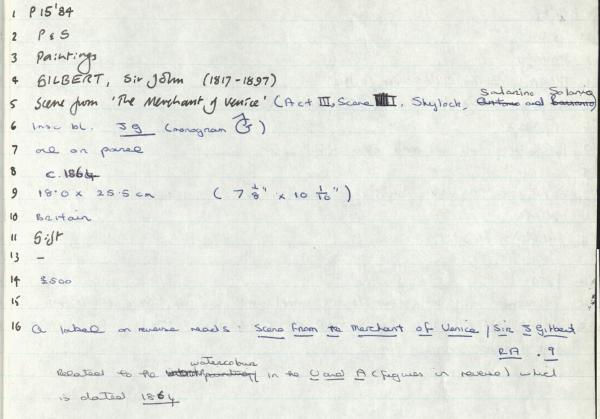 1 P 15'84
2 P & S
3 Paintings
4 GILBERT, Sir John (1817-1897)
5 Scene from 'The Merchant of Venice' (Act III, Scene I, Shylock, Salarino and Solanio)
6 Insc bl. JG (monogram)
7 oil on panel
8 c. 1864
9 18.0 x 25.5 cm (7 1/8" x 10 1/16")
10 Britain
11 Gift
13 –
14 £500
15
16 A label on reverse reads: Scene from the Merchant of Venice / Sir J Gilbert
RA . 9
Related to the watercolour in the V and A (figures in reverse) which
is dated 1864